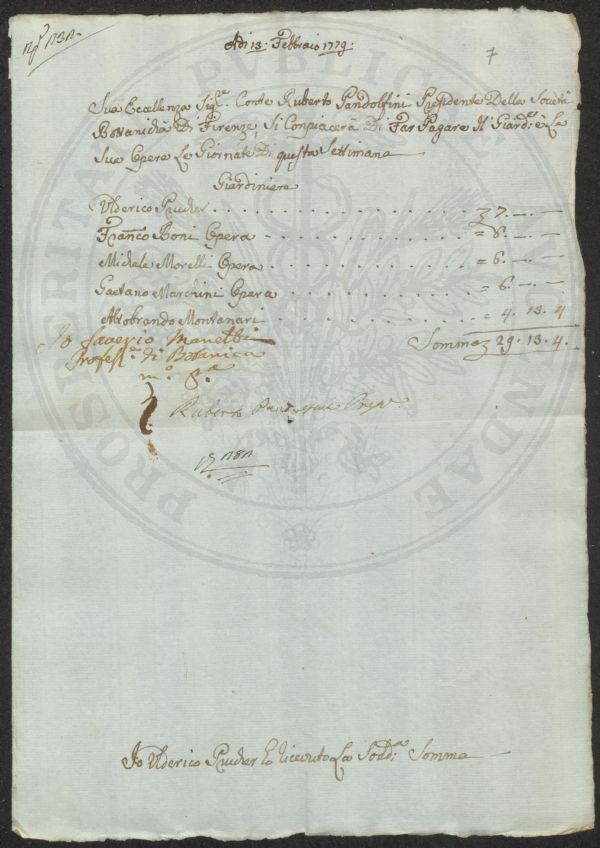 Adi 13: Febbraio 1779:
7
Sua Eccellenza Sig.re Conte Ruberto Pandolfini Presidente Della Società
Bottanicha Di Firenze Si Conpiacerà Di Far Pagare Il Giard:re è La
Sue Opere Le Giornate Di questa Settimana
Giardiniere
Ulderico Prucker . . . 7. — —
Franco Boni Opera = 6. — —
Michele Morelli Opera = 6. — —
Gaetano Marchini Opera = 6. — —
Atrobrando Montanari = 4. 13. 4
Io Saverio Manetti
Somma 29. 13. 4.
Profess.e di Botanica
m.o p.a
Ruberto Pandolfini Pres.
Io Ulderico Prucker ho ricevuto La Sodd:a Somma
PROSPERITATI PUBLICAE AUGENDAE